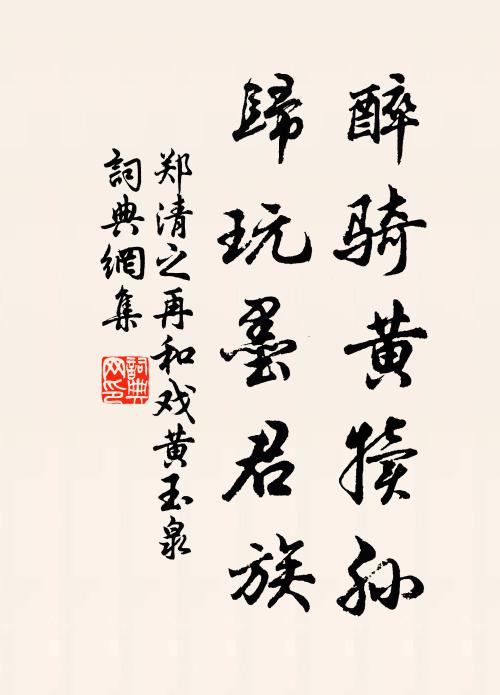 醉骑黄犊孙
歸玩墨君族
郑清之再和戏黄玉泉
詞典網集
詞典网印